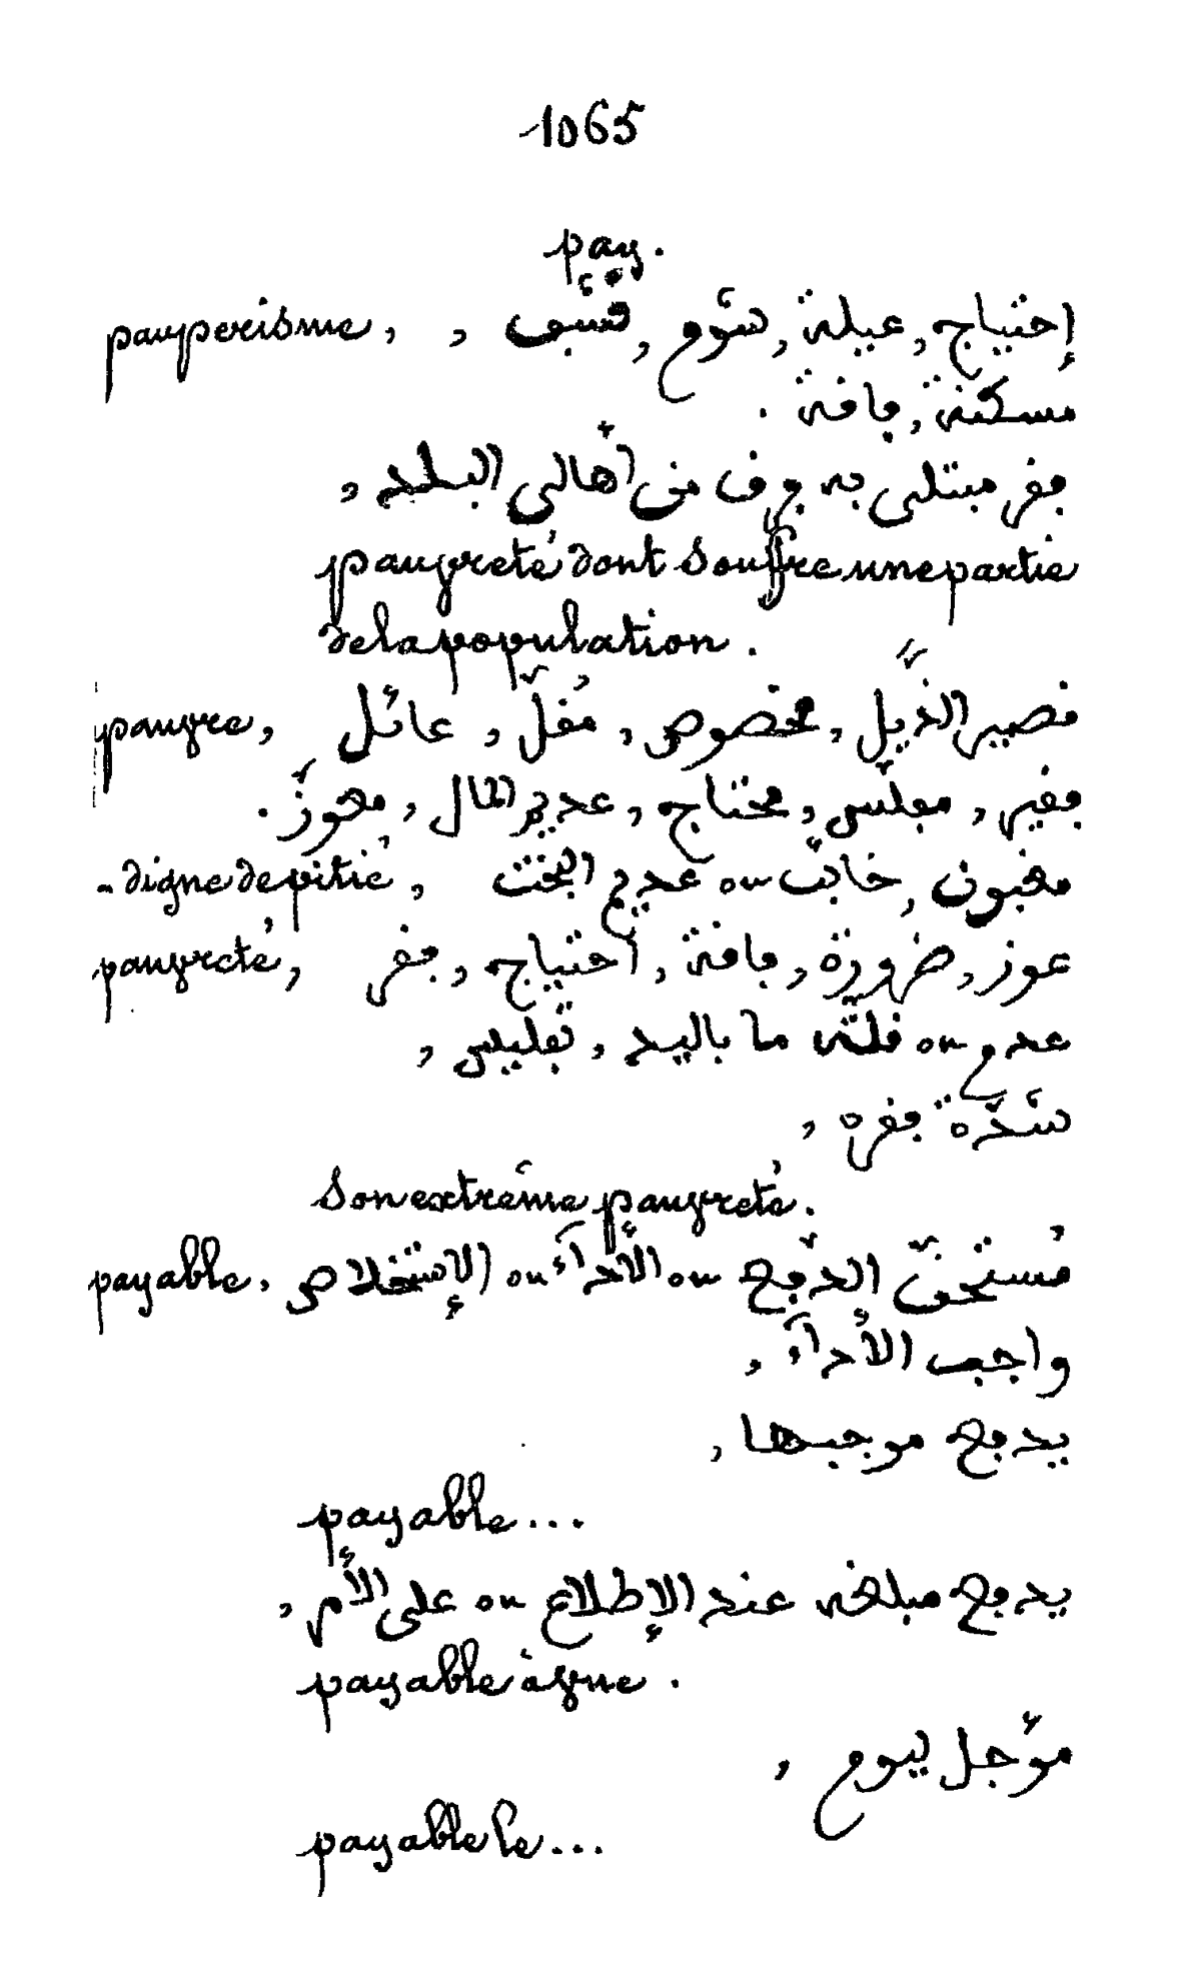 1065
pay.
pauperisme, , إحتياج, عيلة, شؤم,
مسكنة, فاقة .
فقر مبتلى به فرق من أهالي البلد ,
pauvreté dont souffre une partie
de la population.
pauvre, قصير الذّيل, مخصوص, مُقلّ, عائل
فقير, مفلّس, محتاج, عديم المال, معوزّ.
- digne de pitié, مغبون, خائب ou عديم البخت
pauvreté, عوز, ضرورة, فاقة, أحتياج, فقر
عدم ou قلّة ما باليد, تفليس,
شدّة فقره,
son extrême pauvreté.
payable, مُستحقّ الدّفع ou الأدآء ou الإستخلاص
واجب الأدآء,
يدفع موجبها,
payable...
يدفع مبلغه عند الإطلاع ou على
payable à vue.
مؤجل ليوم,
payable le...